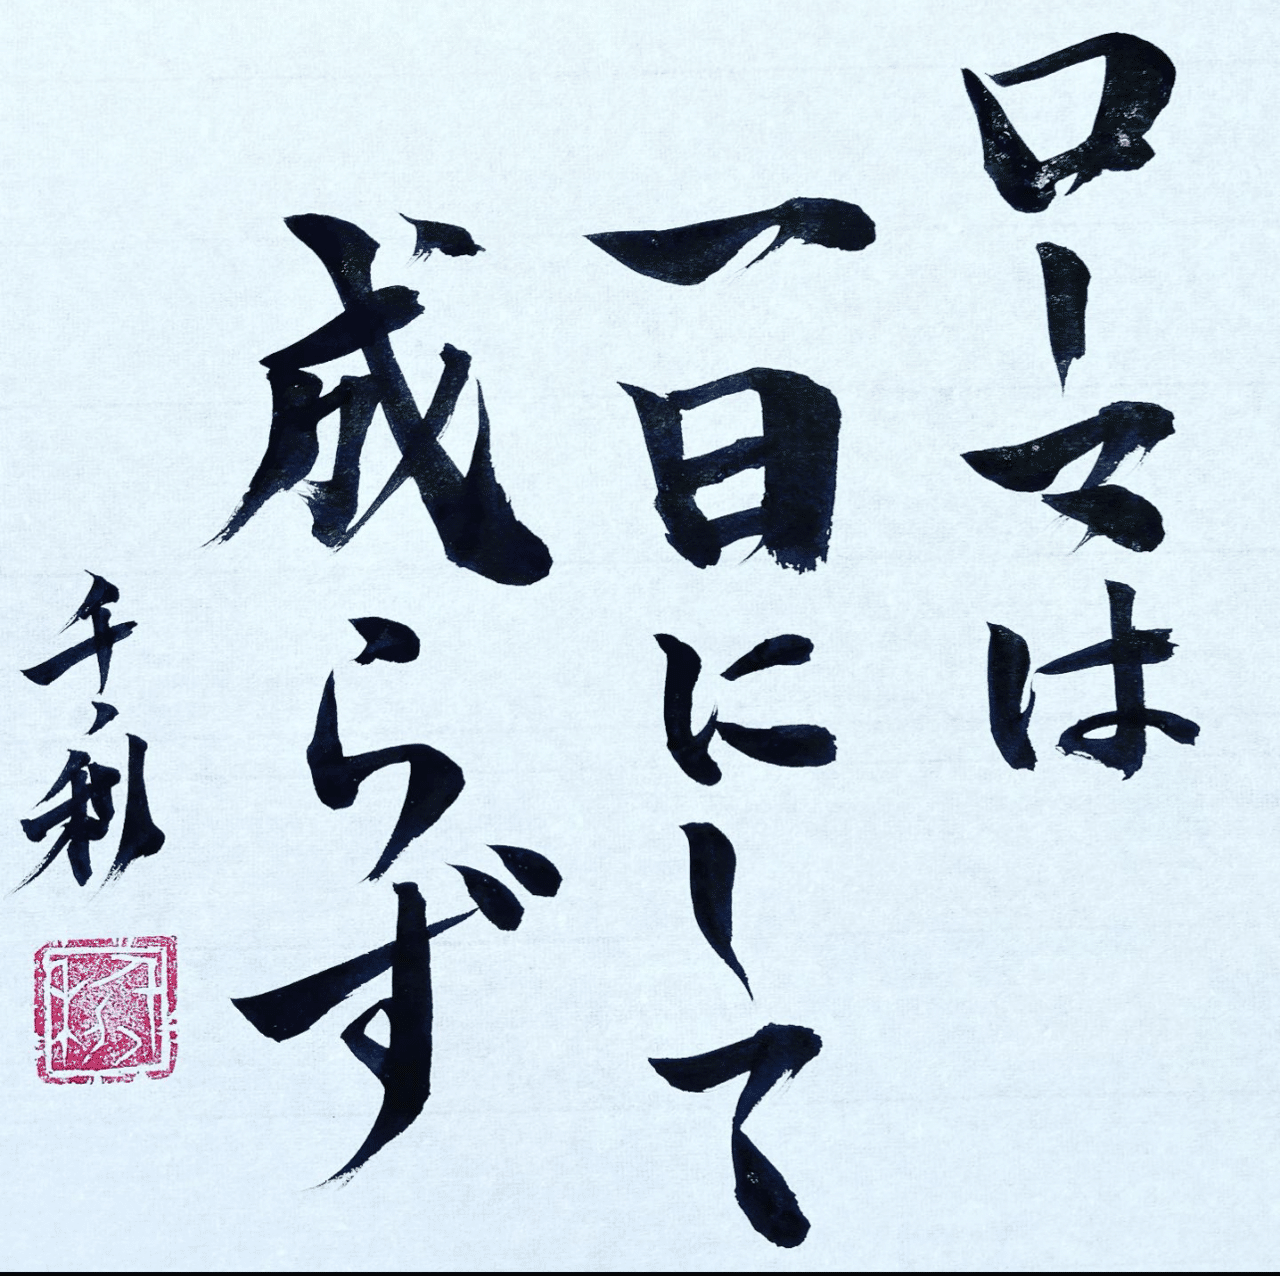 ローマは
一日にして
成らず
千利